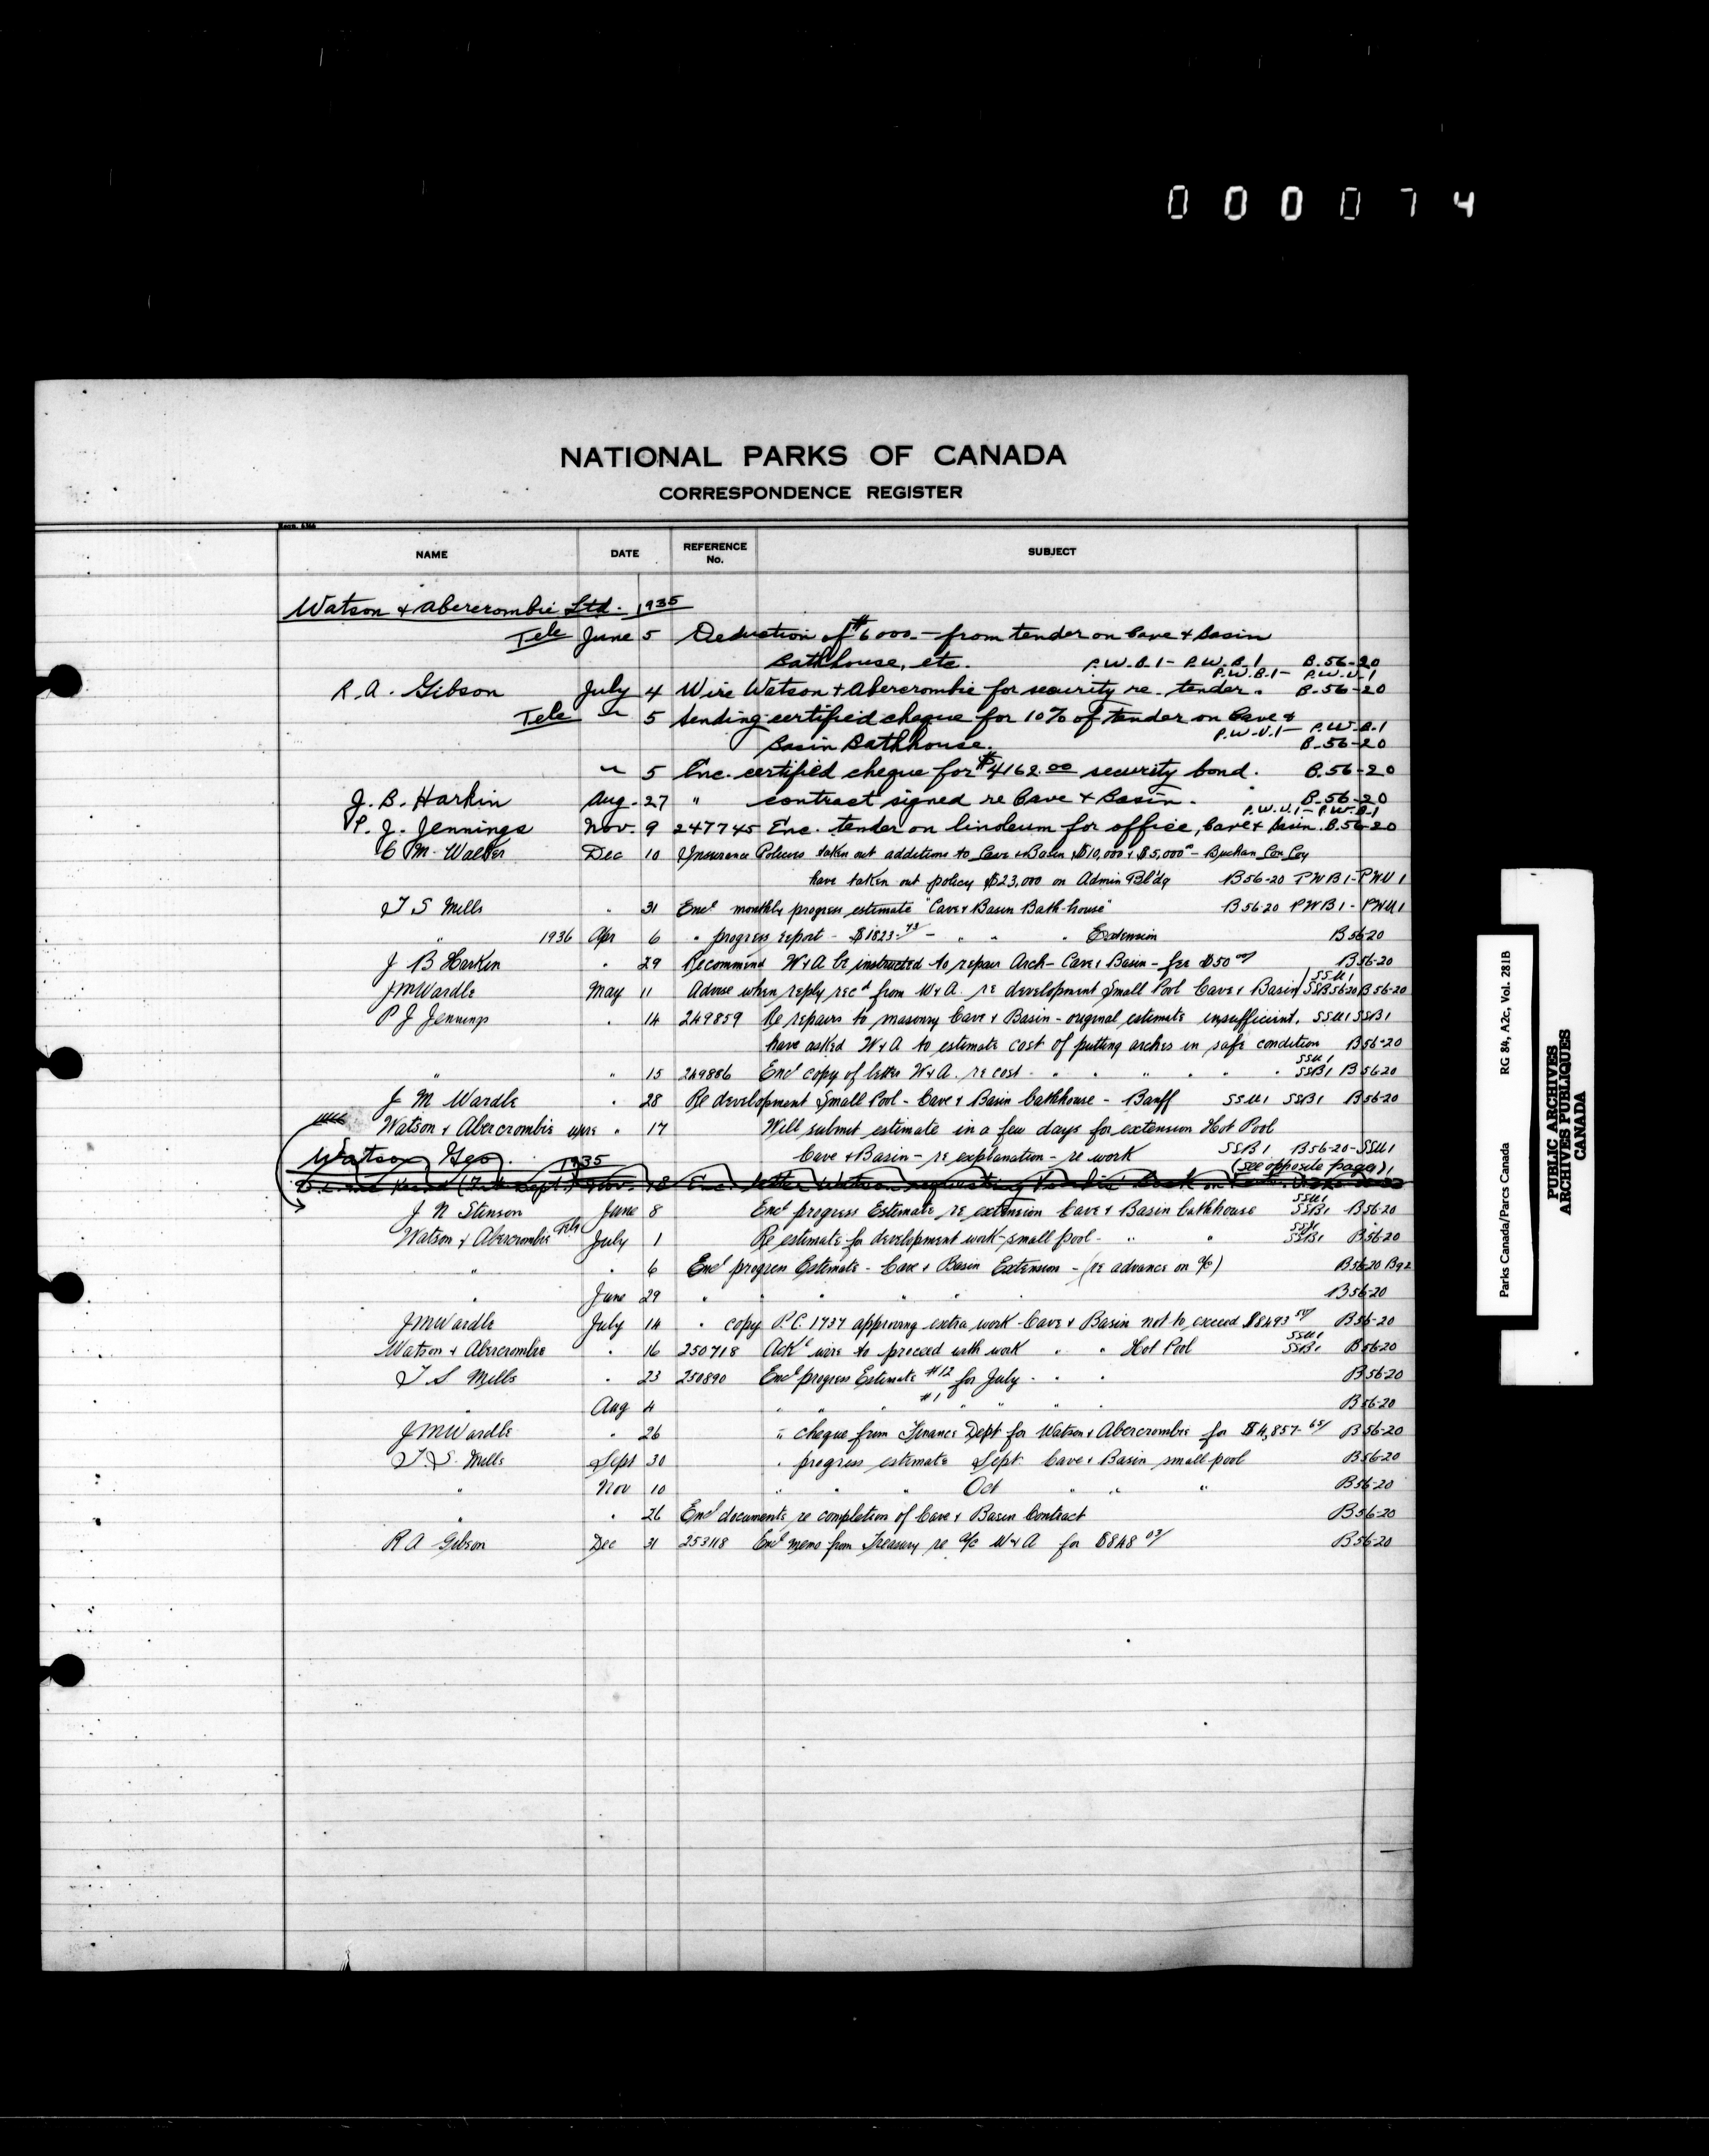 000074
NATIONAL PARKS OF CANADA
CORRESPONDENCE REGISTER
NAME DATE REFERENCE No. SUBJECT
Watson & Abercrombie Ltd. 1935
Tele June 5 Deduction of $6000.— from tender on Cave & Basin
Bathhouse, etc. P.W.B.1 - P.W.B.1 B.56-20
P.W.B.1 - P.W.U.1
R. A. Gibson July 4 Wire Watson & Abercrombie for security re tender. B.56-20
Tele " 5 Sending certified cheque for 10% of tender on Cave &
P.W.U.1 - P.W.B.1
Basin Bathhouse. B.56-20
" 5 Enc. certified cheque for $4162.00 security bond. B.56-20
J. B. Harkin Aug. 27 " contract signed re Cave & Basin. B.56-20
P.W.U.1 - P.W.B.1
P. J. Jennings Nov. 9 247745 Enc. tender on linoleum for office, Cave & Basin. B.56-20
C M. Walker Dec 10 Insurance Policies taken out additions to Cave & Basin $10,000 & $5,000 - Buchan Con Coy
have taken out policy $23,000 on Admin Bl'dg B56-20 PWB1-PWU1
T S Mills " 31 Encl monthly progress estimate "Cave & Basin Bath-house" B56-20 PWB1 - PWU1
" 1936 Apr 6 " progress report - $1823.43 - " " " Extension B56-20
J B Harkin " 29 Recommend W & A be instructed to repair Arch - Cave & Basin - fee $50.00 B56-20
SSU1
J M Wardle May 11 Advise when reply rec'd from W & A. re development Small Pool Cave & Basin SSB56-20 B56-20
P J Jennings " 14 249859 Re repairs to masonry Cave & Basin - original estimate insufficient. SSU1 SSB1
have asked W & A to estimate cost of putting arches in safe condition B56-20
SSU1
" " 15 249886 Encl copy of letter W & A. re cost " " " " " " SSB1 B56-20
J M Wardle " 28 Re development Small Pool - Cave & Basin bathhouse - Banff SSU1 SSB1 B56-20
Watson & Abercrombie wire " 17 Will submit estimate in a few days for extension Hot Pool
Cave & Basin - re explanation - re work SSB1 B56-20-SSU1
Watson Geo. 1935 (see opposite page)
Nov. 18 Enc. letter Watson requesting
SSU1
J N Stinson June 8 Encl progress Estimate re extension Cave & Basin bathhouse SSB1 B56-20
SSU1
Watson & Abercrombie Tele July 1 Re estimate for development work - small pool - " " SSB1 B56-20
" " 6 Encl progress Estimate - Cave & Basin Extension - (re advance on a/c) B56-20 B92
" June 29 " " " " " B56-20
J M Wardle July 14 " copy P.C. 1737 approving extra work - Cave & Basin not to exceed $8493.50 B56-20
SSU1
Watson & Abercrombie " 16 250718 Ack'd wire to proceed with work " " Hot Pool SSB1 B56-20
T S Mills " 23 250890 Encl progress Estimate #12 for July " " " B56-20
" Aug 4 " " " #1 " " " " B56-20
J M Wardle " 26 " cheque from Finance Dept for Watson & Abercrombie for $4,857.65 B56-20
T. S. Mills Sept 30 " progress estimate Sept Cave & Basin small pool B56-20
" Nov 10 " " " Oct " " " B56-20
" " 26 Encl documents re completion of Cave & Basin Contract B56-20
R A Gibson Dec 31 253118 Encl memo from Treasury re a/c W & A for $848.03 B56-20
Parks Canada/Parcs Canada RG 84, A2c, Vol. 281B
PUBLIC ARCHIVES
ARCHIVES PUBLIQUES
CANADA